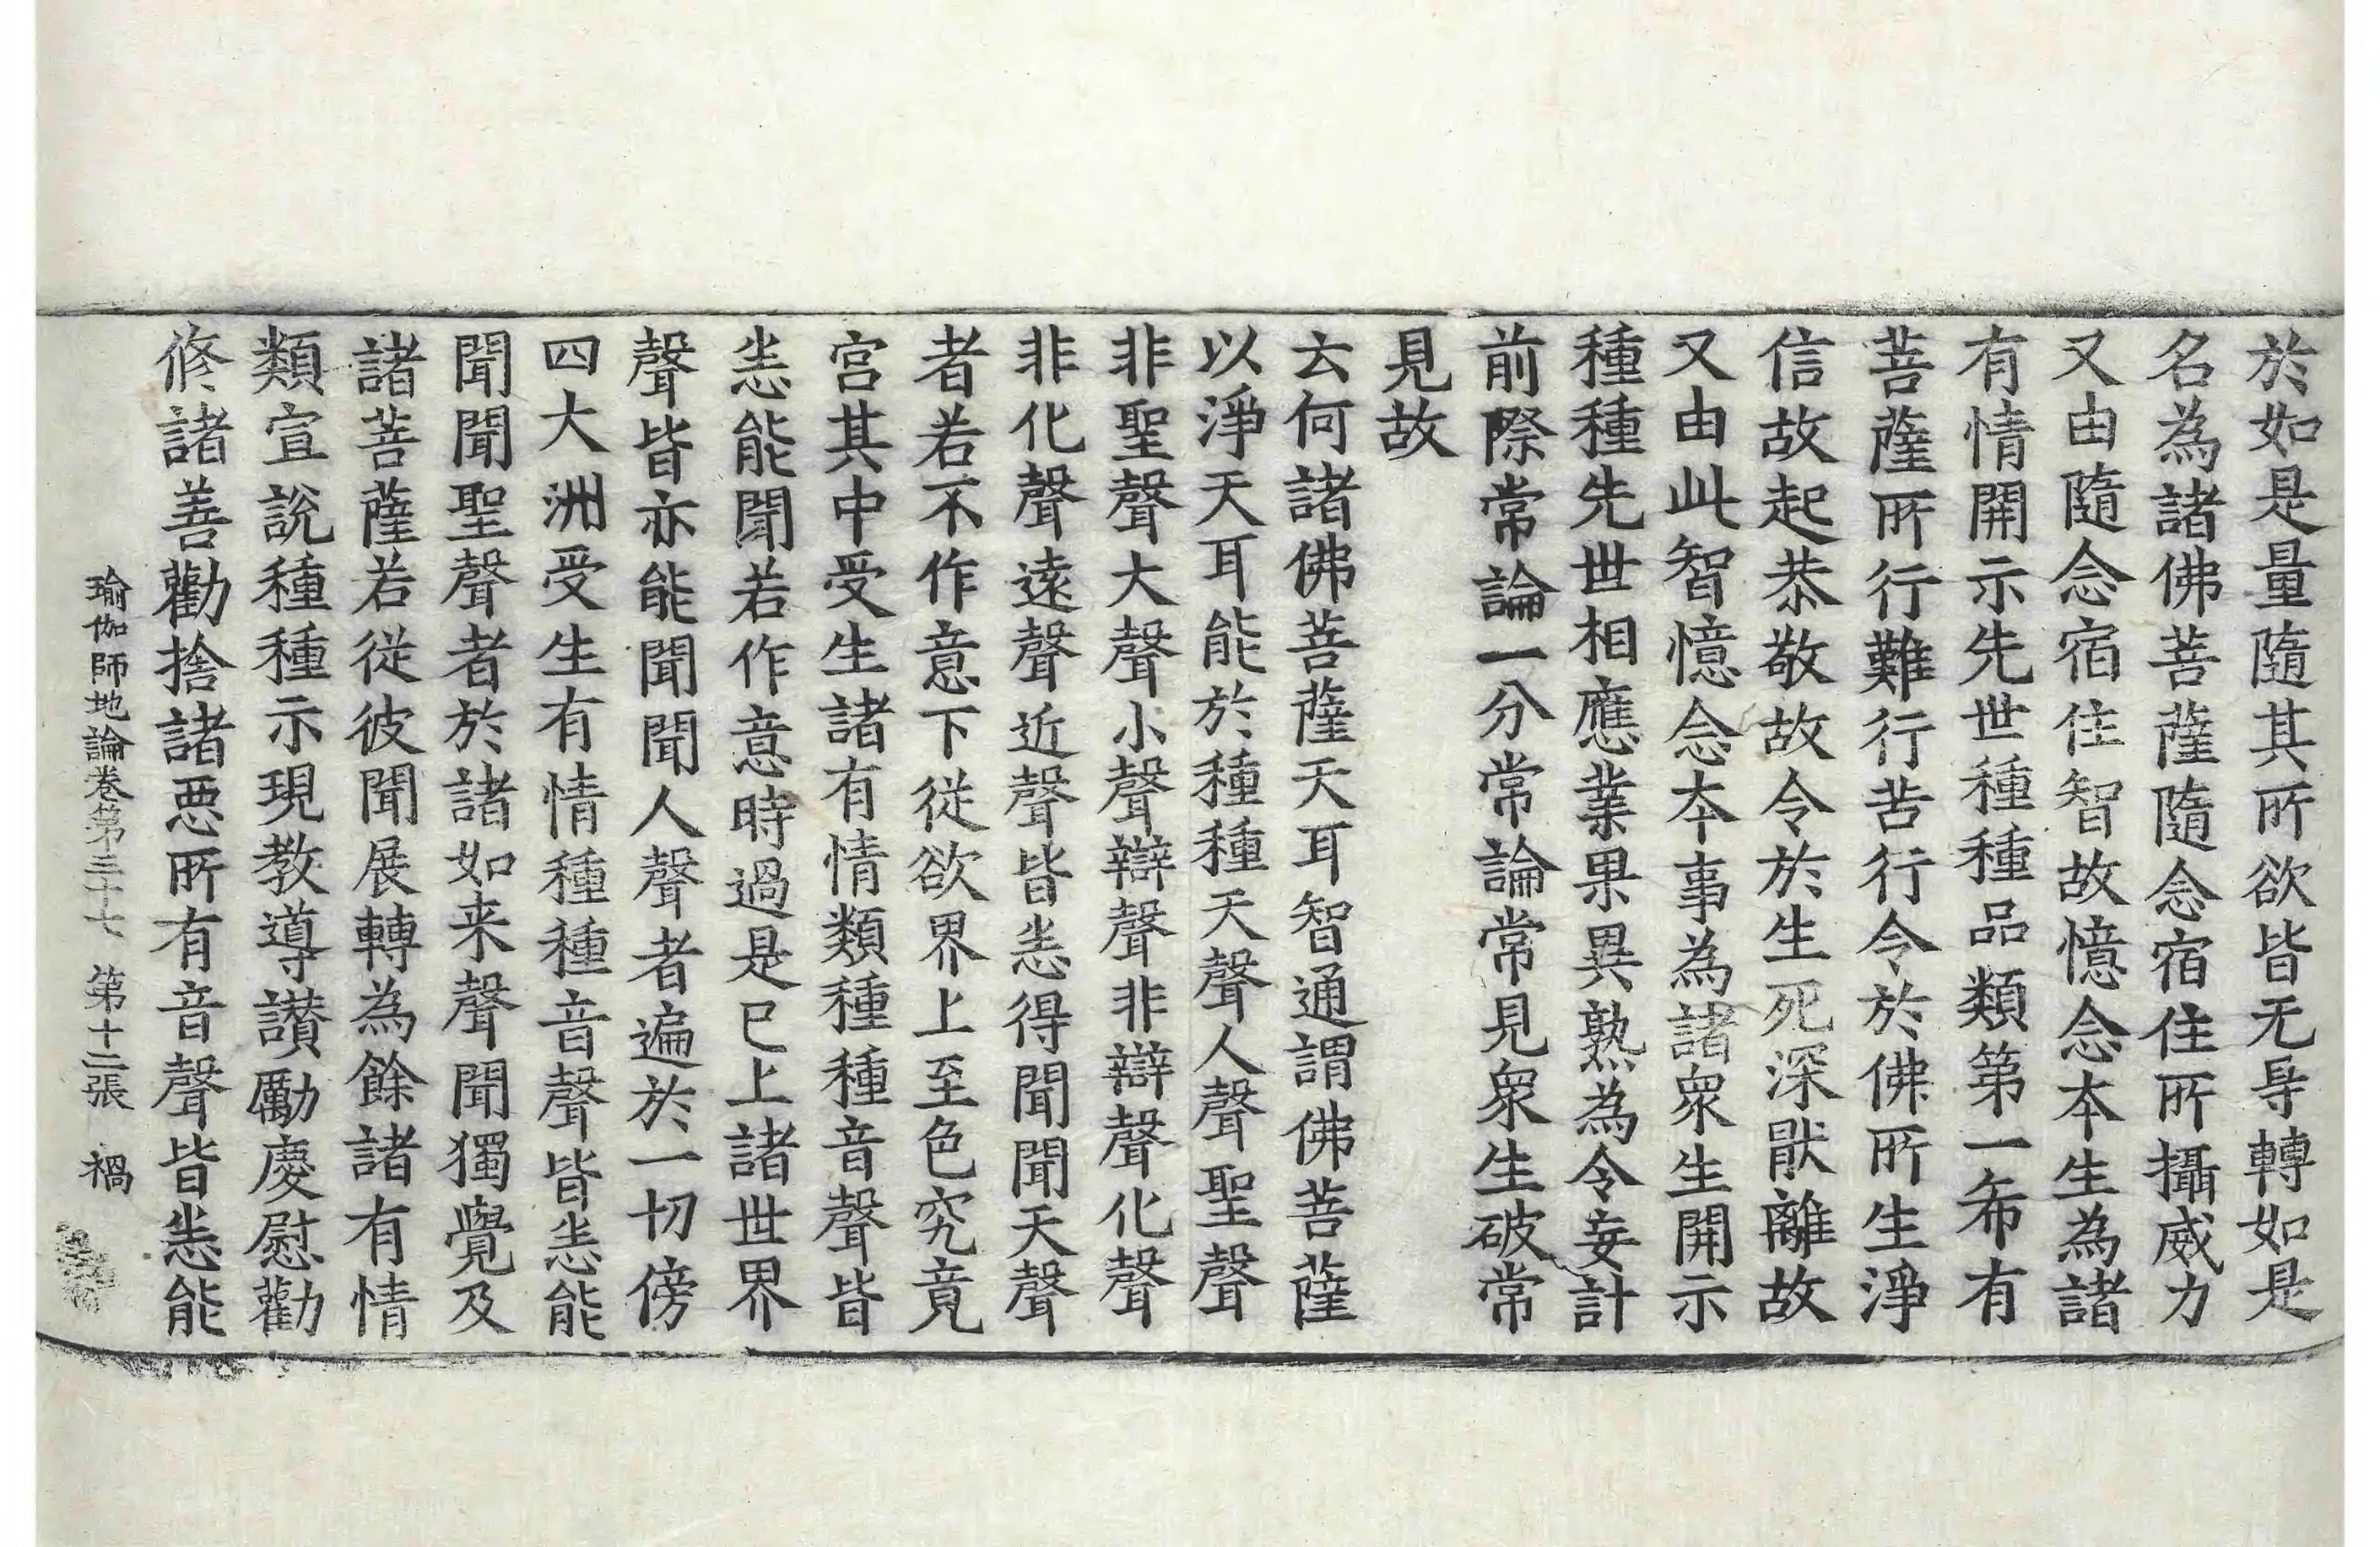 於如是量隨其所欲皆无㝵轉如是
名為諸佛菩薩隨念宿住所攝威力
又由隨念宿住智故憶念本生為諸
有情開示先世種種品類第一希有
菩薩所行難行苦行令於佛所生淨
信故起恭敬故令於生死深猒離故
又由此智憶念本事為諸衆生開示
種種先世相應業果異熟為令妄計
前際常論一分常論常見衆生破常
見故
云何諸佛菩薩天耳智通謂佛菩薩
以淨天耳能於種種天聲人聲聖聲
非聖聲大聲小聲辯聲非辯聲化聲
非化聲遠聲近聲皆悉得聞聞天聲
者若不作意下從欲界上至色究竟
宮其中受生諸有情類種種音聲皆
悉能聞若作意時過是已上諸世界
聲皆亦能聞聞人聲者遍於一切傍
四大洲受生有情種種音聲皆悉能
聞聞聖聲者於諸如来聲聞獨覺及
諸菩薩若從彼聞展轉為餘諸有情
類宣說種種示現教導讃勵慶慰勸
修諸善勸捨諸惡所有音聲皆悉能
瑜伽師地論卷第三十七 第十二張 禍